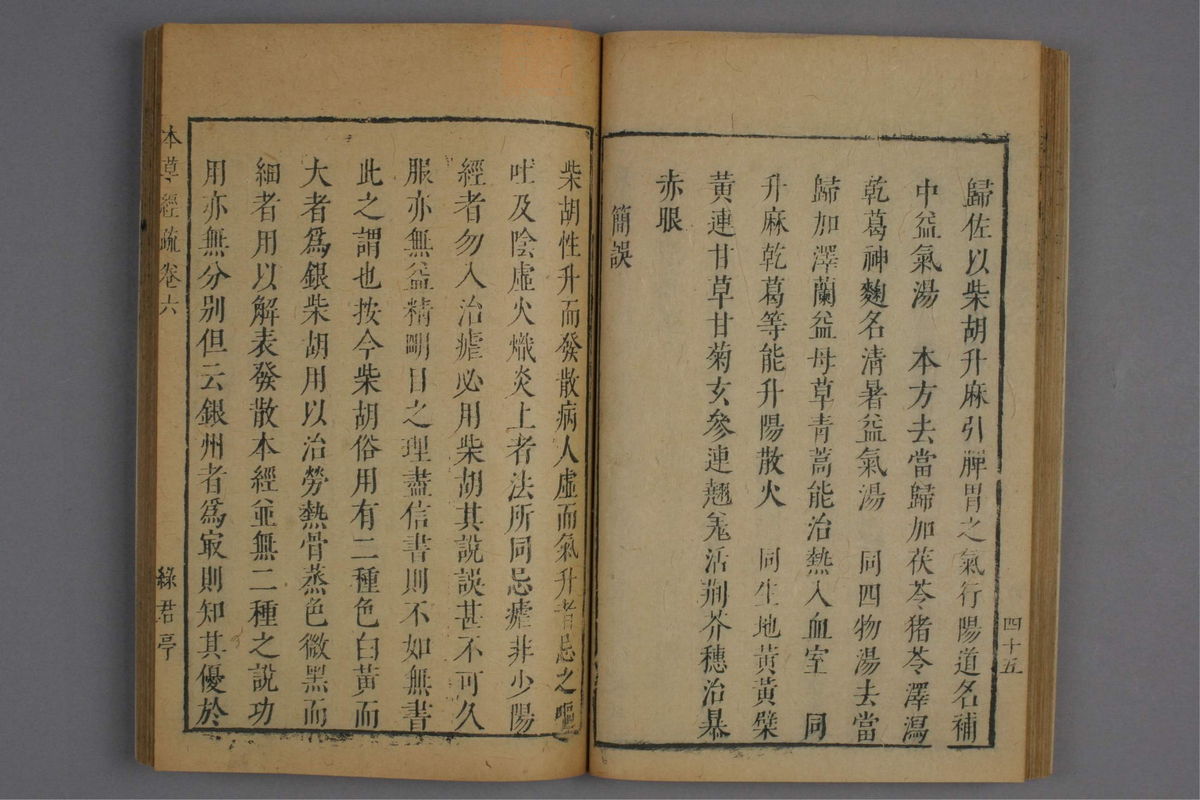 歸佐以柴胡升麻引脾胃之氣行陽道名補
中益氣湯 本方去當歸加茯苓猪苓澤瀉
乾葛神麴名清暑益氣湯 同四物湯去當
歸加澤蘭益母草青蒿能治熱入血室 同
升麻乾葛等能升陽散火 同生地黃黃檗
黃連甘草甘菊玄參連翹羗活荆芥穗治暴
赤眼
簡誤
四十五
柴胡性升而發散病人虛而氣升者忌之嘔
吐及陰虛火熾炎上者法所同忌瘧非少陽
經者勿入治瘧必用柴胡其說誤甚不可久
服亦無益精明目之理盡信書則不如無書
此之謂也按今柴胡俗用有二種色白黃而
大者爲銀柴胡用以治勞熱骨蒸色微黑而
細者用以解表發散本經並無二種之說功
用亦無分别但云銀州者爲㝡則知其優於
本草經疏 卷六 綠君亭